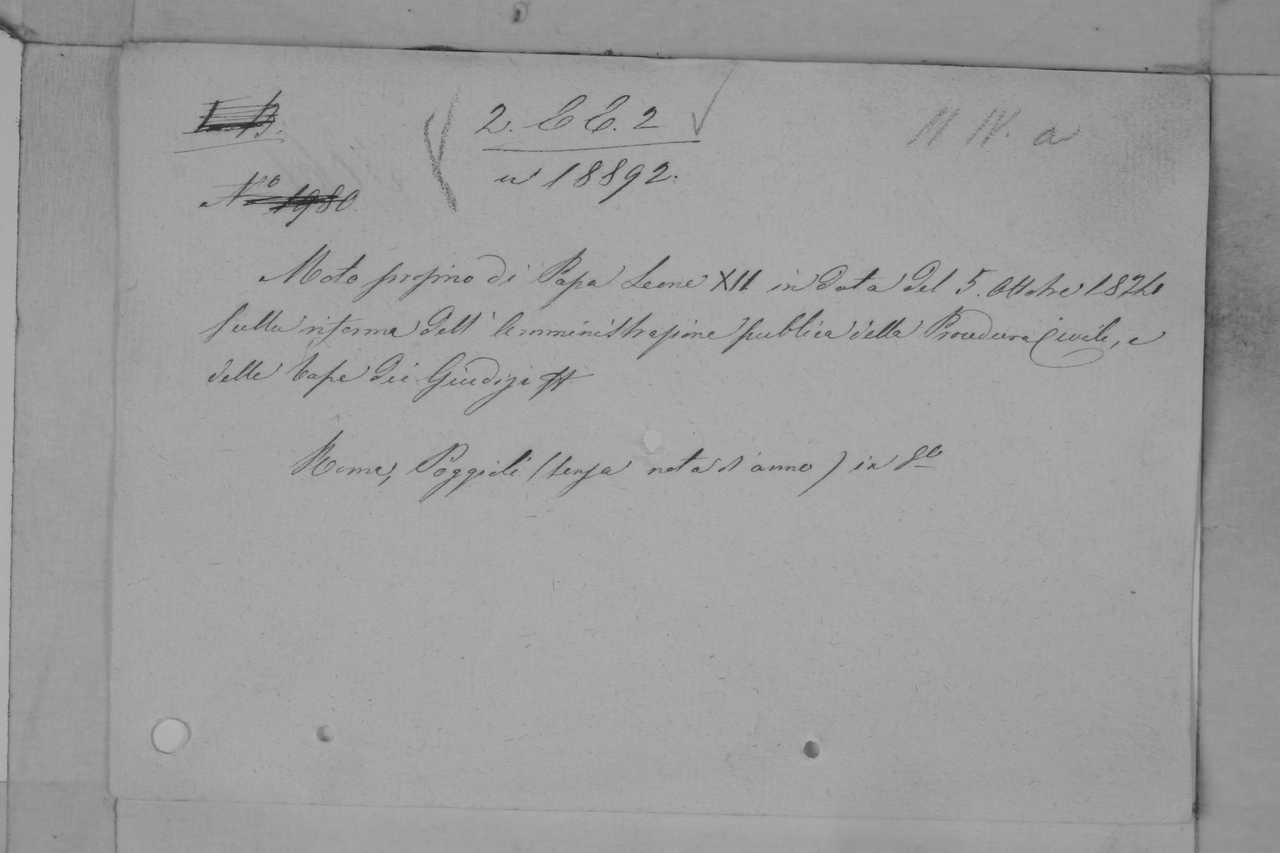 1 B.
2. E E. 2
M IV. a
N.o 1980
n 18892.
Moto proprio di Papa Leone XII in data del 5. Ottobre 1824
sulla riforma dell' Amministrazione publica della Procedura Civile, e
delle Tasse dei Giudizi
Roma, Poggioli (senza nota d'anno) in 8o